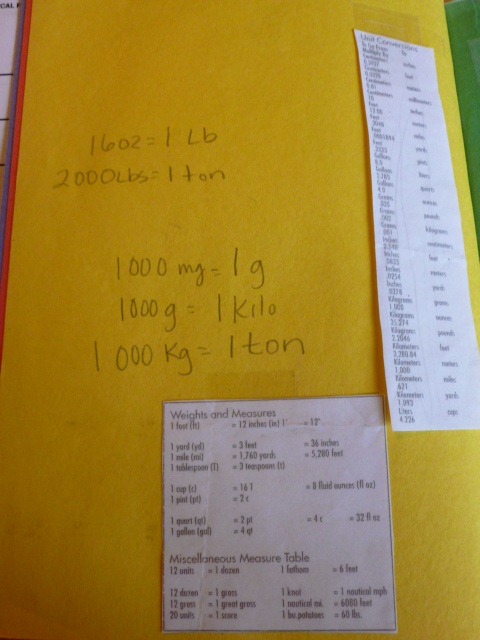 16oz = 1 Lb
2000Lbs = 1 ton
1000 mg = 1 g
1000g = 1 Kilo
1 000 Kg = 1 ton
Weights and Measures
1 foot (ft) = 12 inches (in) 1' = 12"
1 yard (yd) = 3 feet = 36 inches
1 mile (mi) = 1,760 yards = 5,280 feet
1 tablespoon (T) = 3 teaspoons (t)
1 cup (c) = 16 T = 8 fluid ounces (fl oz)
1 pint (pt) = 2 c
1 quart (qt) = 2 pt = 4 c = 32 fl oz
1 gallon (gal) = 4 qt
Miscellaneous Measure Table
12 units = 1 dozen 1 fathom = 6 feet
12 dozen = 1 gross 1 knot = 1 nautical mph
12 gross = 1 great gross 1 nautical mi. = 6080 feet
20 units = 1 score 1 bu. potatoes = 60 lbs.
Unit Conversions
To Go From To
Multiply By
Centimeters inches
Centimeters feet
Centimeters meters
0.01
Centimeters millimeters
10
Feet inches
Feet meters
Feet miles
Feet yards
Gallons pints
Gallons liters
3.785
Gallons quarts
4.0
Grams ounces
.035
Grams pounds
.002
Grams kilograms
.001
Inches centimeters
2.540
Inches feet
Inches meters
.0254
Inches yards
.0278
Kilograms grams
1,000
Kilograms ounces
35.274
Kilograms pounds
2.2046
Kilometers feet
3,280.84
Kilometers meters
1,000
Kilometers miles
.621
Kilometers yards
1,093
Liters cups
4.226